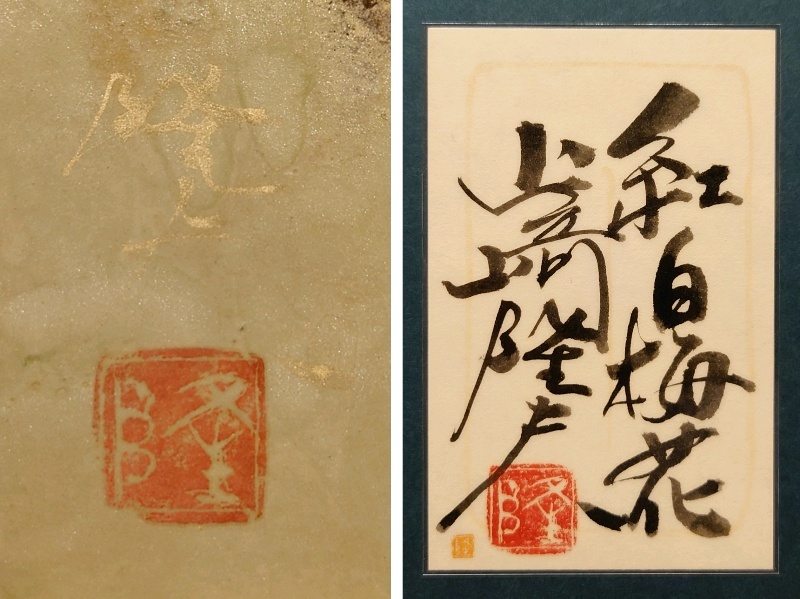 隆
隆
紅白梅花
山﨑隆夫
隆